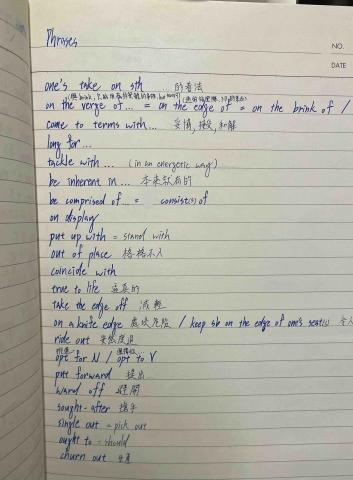 Phrases
NO.
DATE
one's take on sth 的看法
on the verge of... = on the edge of = on the brink of /
come to terms with... 妥協, 接受, 和解
long for...
tackle with... (in an energetic way)
be inherent in... 本來就有的
be comprised of... = consist(s) of
on display
put up with = stand with
out of place 格格不入
coincide with
true to life 逼真的
take the edge off 減輕
on a knife edge 處於危險 / keep sb on the edge of one's seat(s) 令人
ride out 安然度過
opt for N / opt to V
put forward 提出
ward off 避開
sought-after 搶手
single out = pick out
ought to = should
churn out 生產